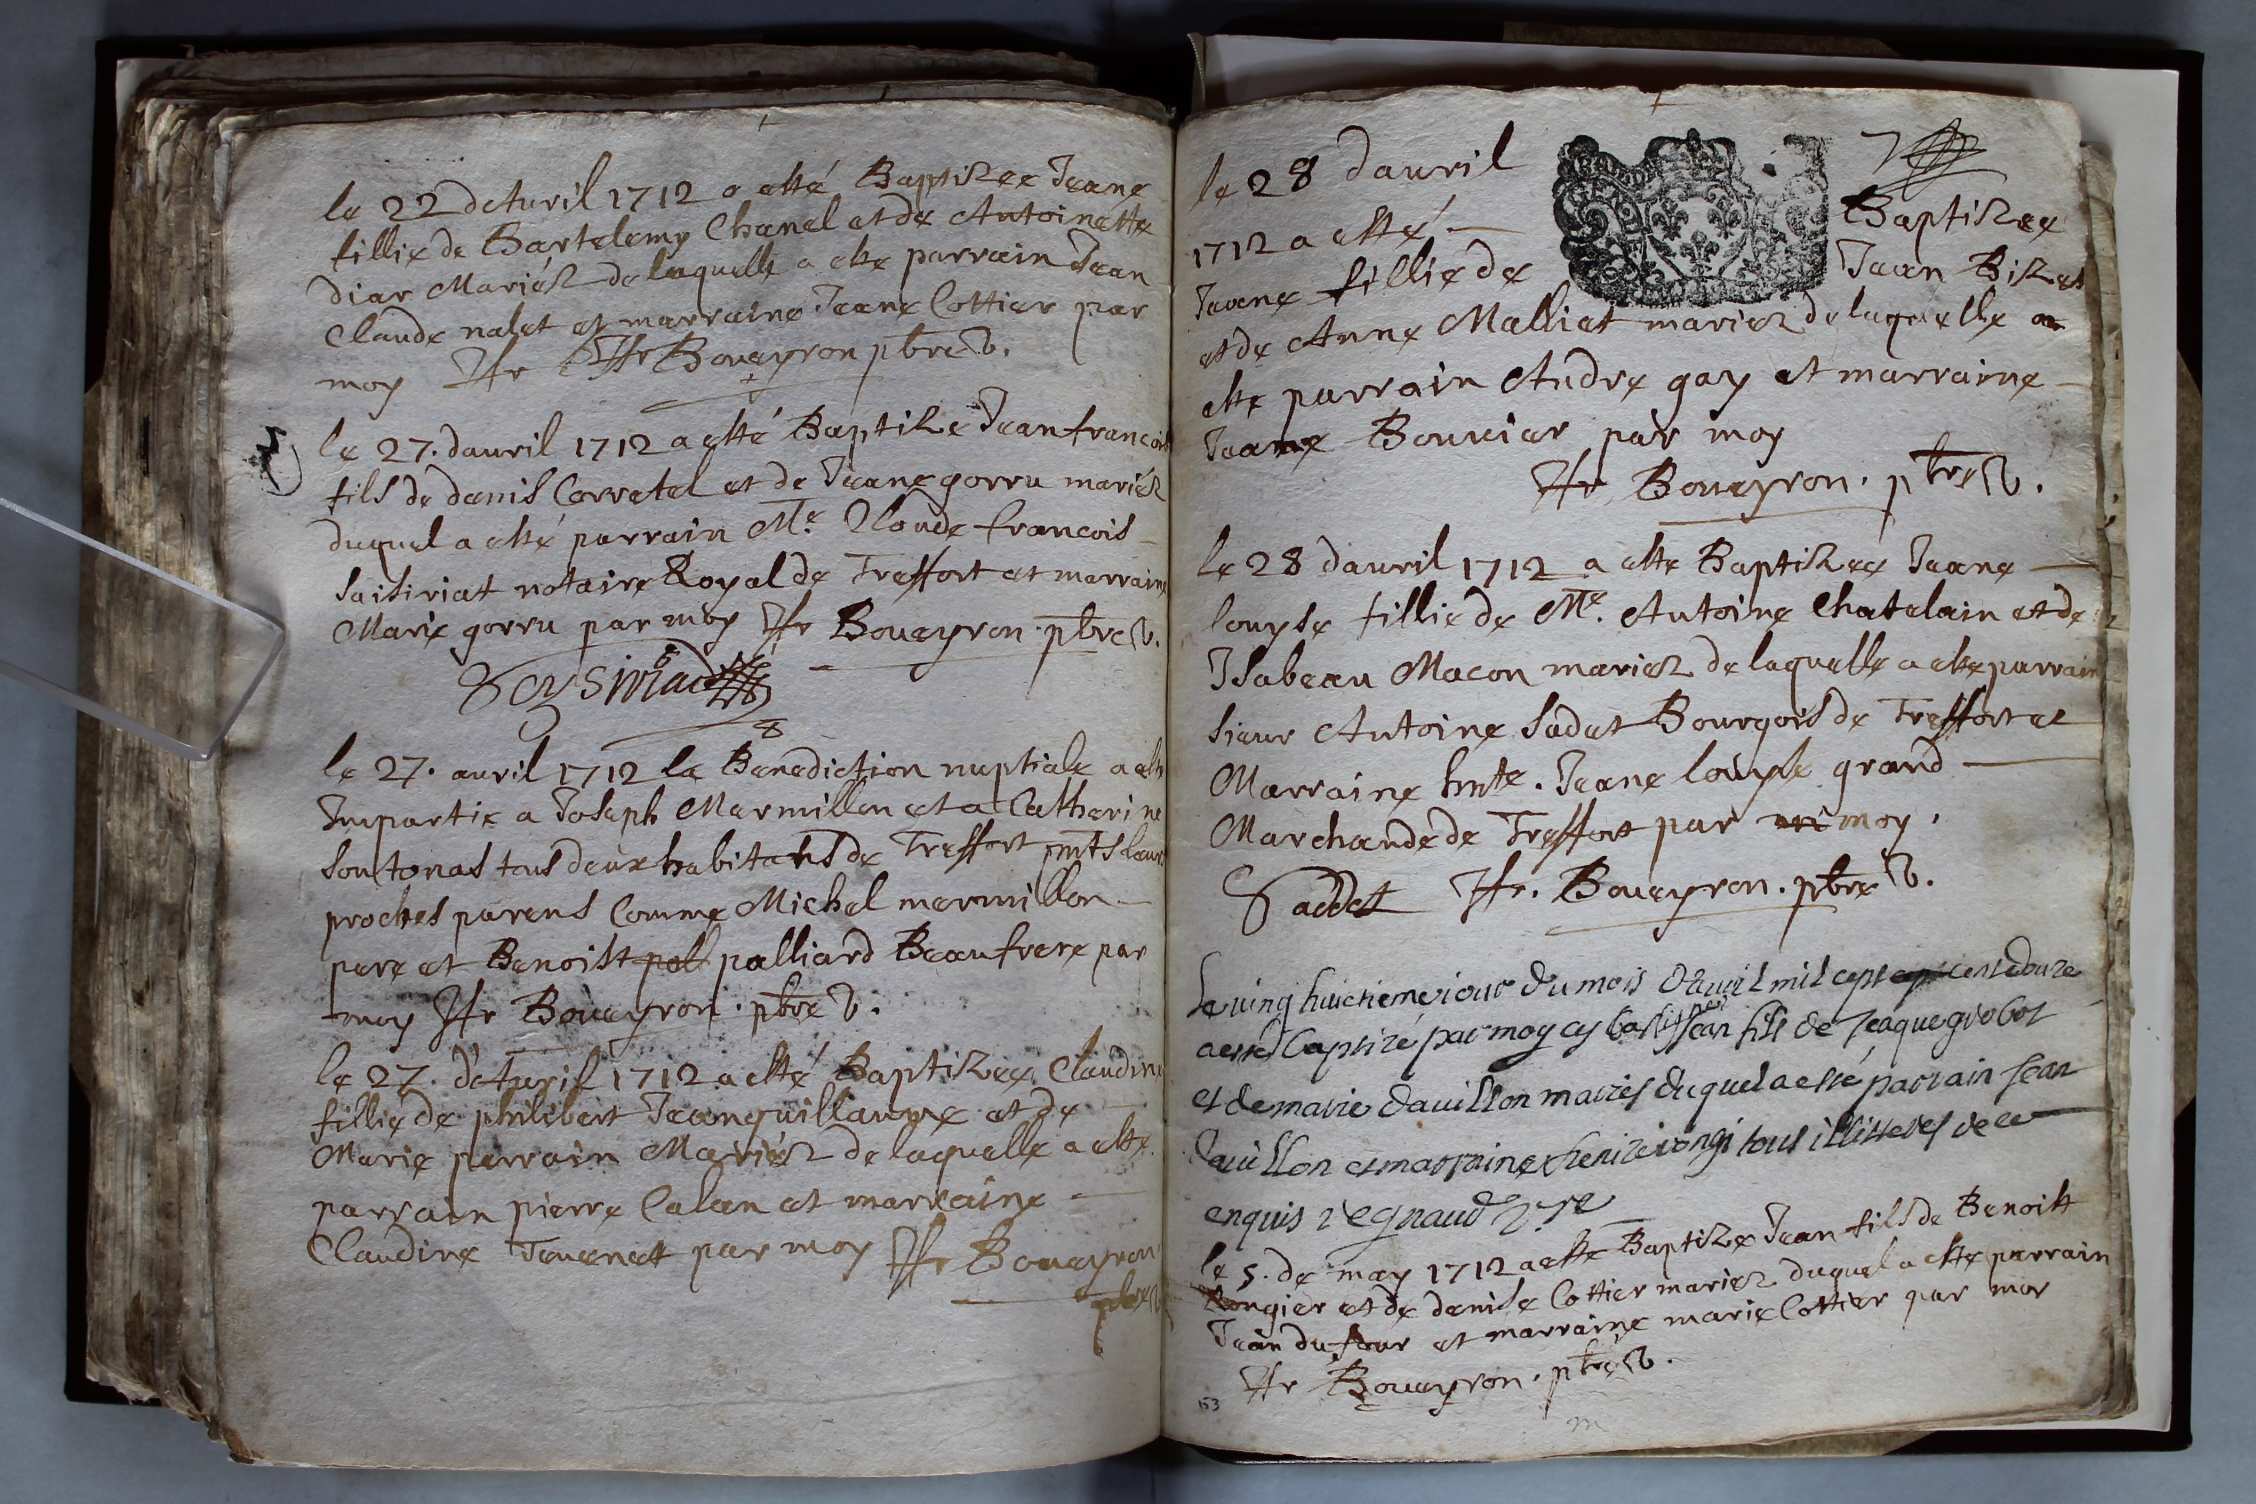 le 22 d'Avril 1712 a esté Baptizee Jeane
fillie de Bartelemy Chanel et de Antoinette
diar Mariéz de laquelle a este parrain Jean
Claude nalet et marraine Jeane Cottier par
moy Boueyron pbre
le 27. dauril 1712 a esté Baptize Jean francois
fils de denis Corretel et de Jeane gorru mariéz
duquel a esté parrain Me. Claude francois
saisiriat notaire Royal de Treffort et marraine
Marie gorru par moy Boueyron pbre
le 27. auril 1712 la Benediction nuptiale a esté
Impartie a Joseph Marmillon et a Catherine
soutonas tous deux habitans de Treffort pnts leurs
proches parens Comme Michel mermillon
pere et Benoist palliard Beaufrere par
moy Boueyron. pbre
le 27. d'Avril 1712 a esté Baptizee Claudine
fillie de philibert Jeanguillaume et de
Marie perrain Mariéz de laquelle a este
parrain pierre Calan et marraine
Claudine Jouenet par moy Boueyron
pbre
le 28 dauril
1712 a esté Baptizee
Jeane fillie de Jean Bizet
et de Anne Malliet mariez de laquelle a
este parrain Andre gay et marraine
Jeane Bouuier par moy
Boueyron. pbre
le 28 dauril 1712 a este Baptizee Jeane
louyse fillie de Me. Antoine Chatelain et de
Isabeau Macon mariez de laquelle a este parrain
sieur Antoine sadet Bourgois de Treffort et
Marraine hnte. Jeane louyse grand
Marchande de Treffort par moy.
Saddet Boueyron. pbre
le ving huictieme iour du mois d'auril mil cept cent douze
a esté baptizé par moy cy bas signé Jean fils de Jeaque grobot
et de marie dauillon mariés duquel a esté parrain Jean
dauillon et marraine rongi tous illisteres de ce
enquis regnaud
le 5. de may 1712 a este Baptize Jean fils de Benoist
Rongier et de denise Cottier mariez duquel a este parrain
Jean dufour et marraine marie Cottier par moy
Boueyron. pbre
153